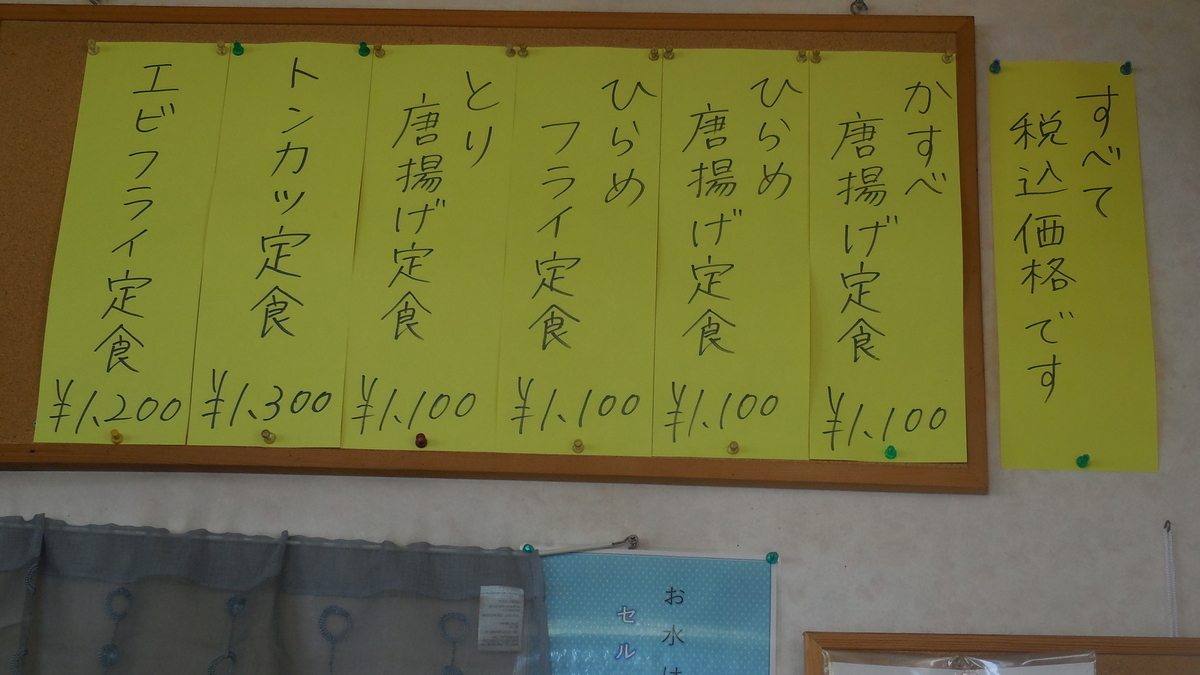 すべて
税込価格です
かすべ
唐揚げ定食
¥1,100
ひらめ
唐揚げ定食
¥1,100
ひらめ
フライ定食
¥1,100
とり
唐揚げ定食
¥1,100
トンカツ定食
¥1,300
エビフライ定食
¥1,200
お水は
セル